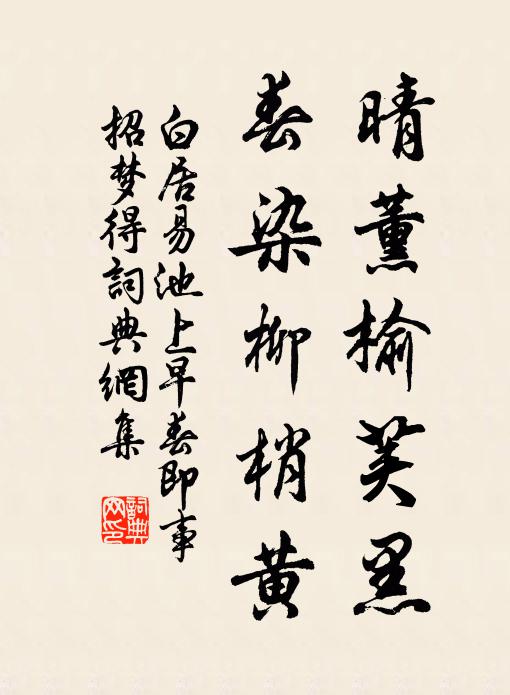 晴薰榆荚黑
春染柳梢黄
白居易池上早春即事
招梦得詞典網集
詞典
网印